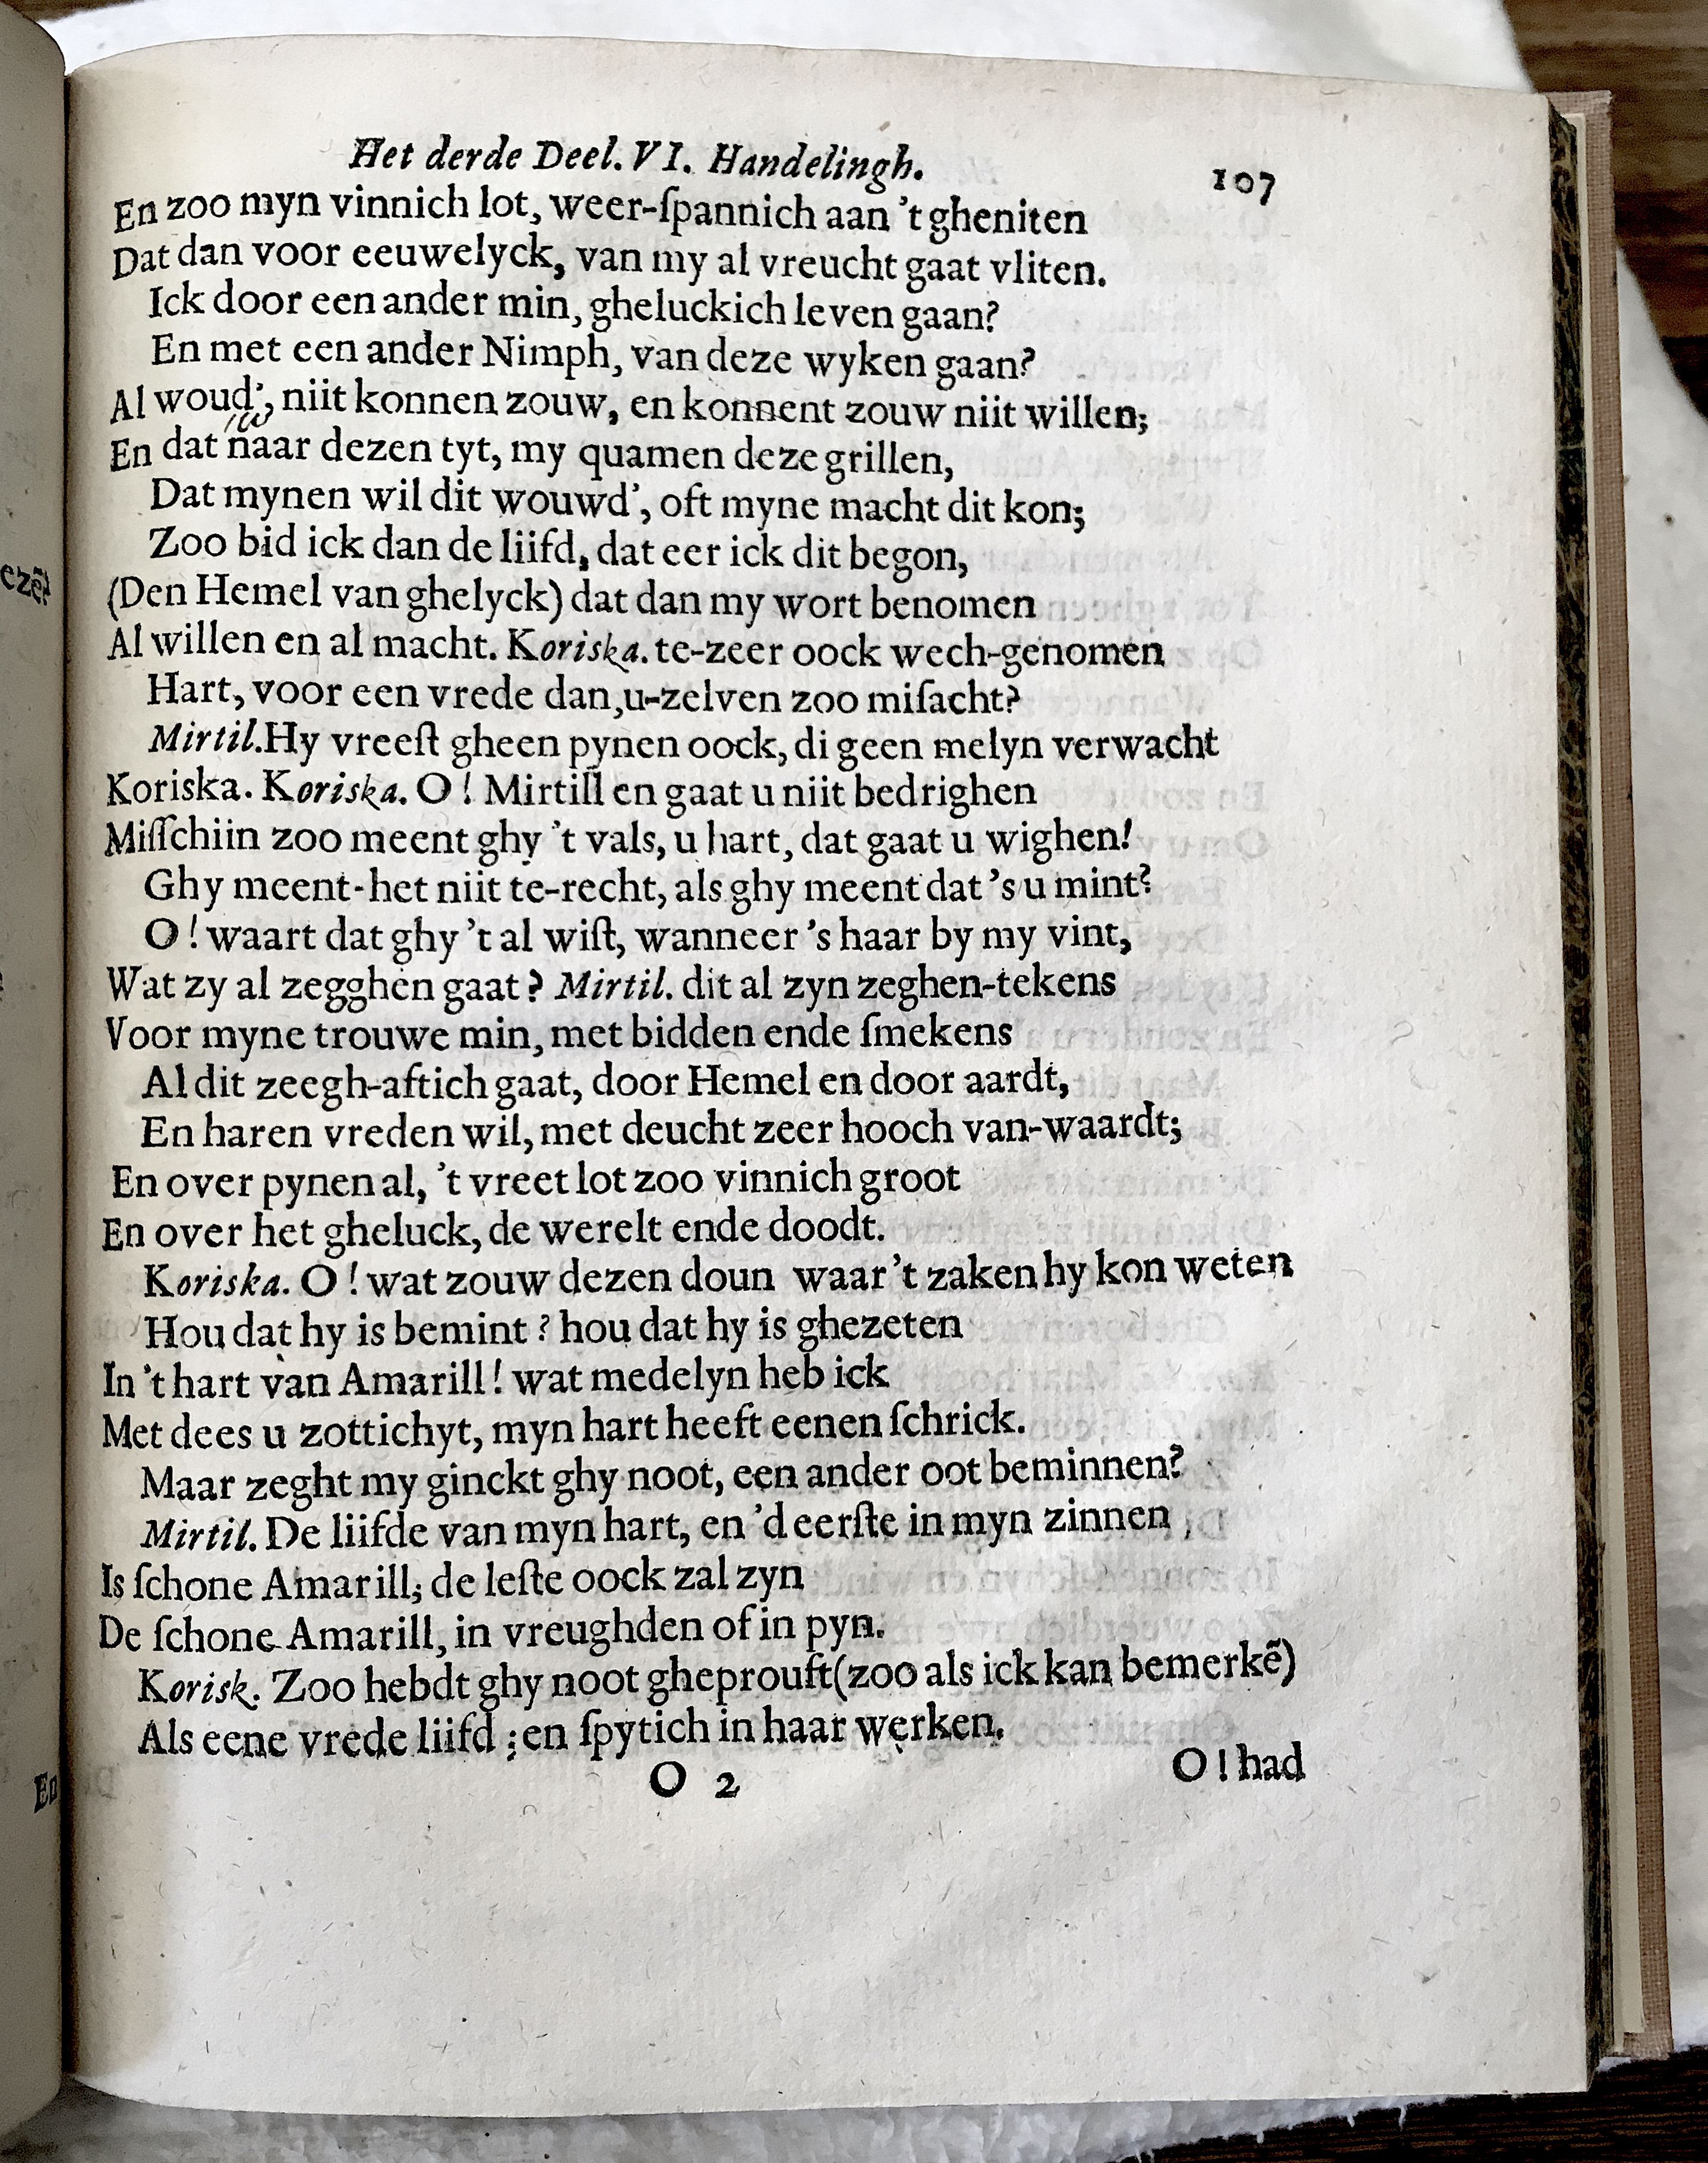 Het derde Deel. VI. Handelingh. 107
En zoo myn vinnich lot, weer-ſpannich aan 't gheniten
Dat dan voor eeuwelyck, van my al vreucht gaat vliten.
Ick door een ander min, gheluckich leven gaan?
En met een ander Nimph, van deze wyken gaan?
Al woud', niit konnen zouw, en konnent zouw niit willen;
En dat naar dezen tyt, my quamen deze grillen,
Dat mynen wil dit wouwd', oft myne macht dit kon;
Zoo bid ick dan de liifd, dat eer ick dit begon,
(Den Hemel van ghelyck) dat dan my wort benomen
Al willen en al macht. Koriska. te-zeer oock wech-genomen
Hart, voor een vrede dan,u-zelven zoo miſacht?
Mirtil. Hy vreeſt gheen pynen oock, di geen melyn verwacht
Koriska. Koriska. O! Mirtill en gaat u niit bedrighen
Miſſchiin zoo meent ghy 't vals, u hart, dat gaat u wighen!
Ghy meent-het niit te-recht, als ghy meent dat 's u mint?
O! waart dat ghy 't al wiſt, wanneer 's haar by my vint,
Wat zy al zegghen gaat? Mirtil. dit al zyn zeghen-tekens
Voor myne trouwe min, met bidden ende ſmekens
Al dit zeegh-aftich gaat, door Hemel en door aardt,
En haren vreden wil, met deucht zeer hooch van-waardt;
En over pynen al, 't vreet lot zoo vinnich groot
En over het gheluck, de werelt ende doodt.
Koriska. O! wat zouw dezen doun waar 't zaken hy kon weten
Hou dat hy is bemint? hou dat hy is ghezeten
In 't hart van Amarill! wat medelyn heb ick
Met dees u zottichyt, myn hart heeft eenen ſchrick.
Maar zeght my ginckt ghy noot, een ander oot beminnen?
Mirtil. De liifde van myn hart, en 'd eerſte in myn zinnen
Is ſchone Amarill; de leſte oock zal zyn
De ſchone Amarill, in vreughden of in pyn.
Korisk. Zoo hebdt ghy noot gheprouft(zoo als ick kan bemerkẽ)
Als eene vrede liifd; en ſpytich in haar werken.
O 2 O! had
ezẽ?
En